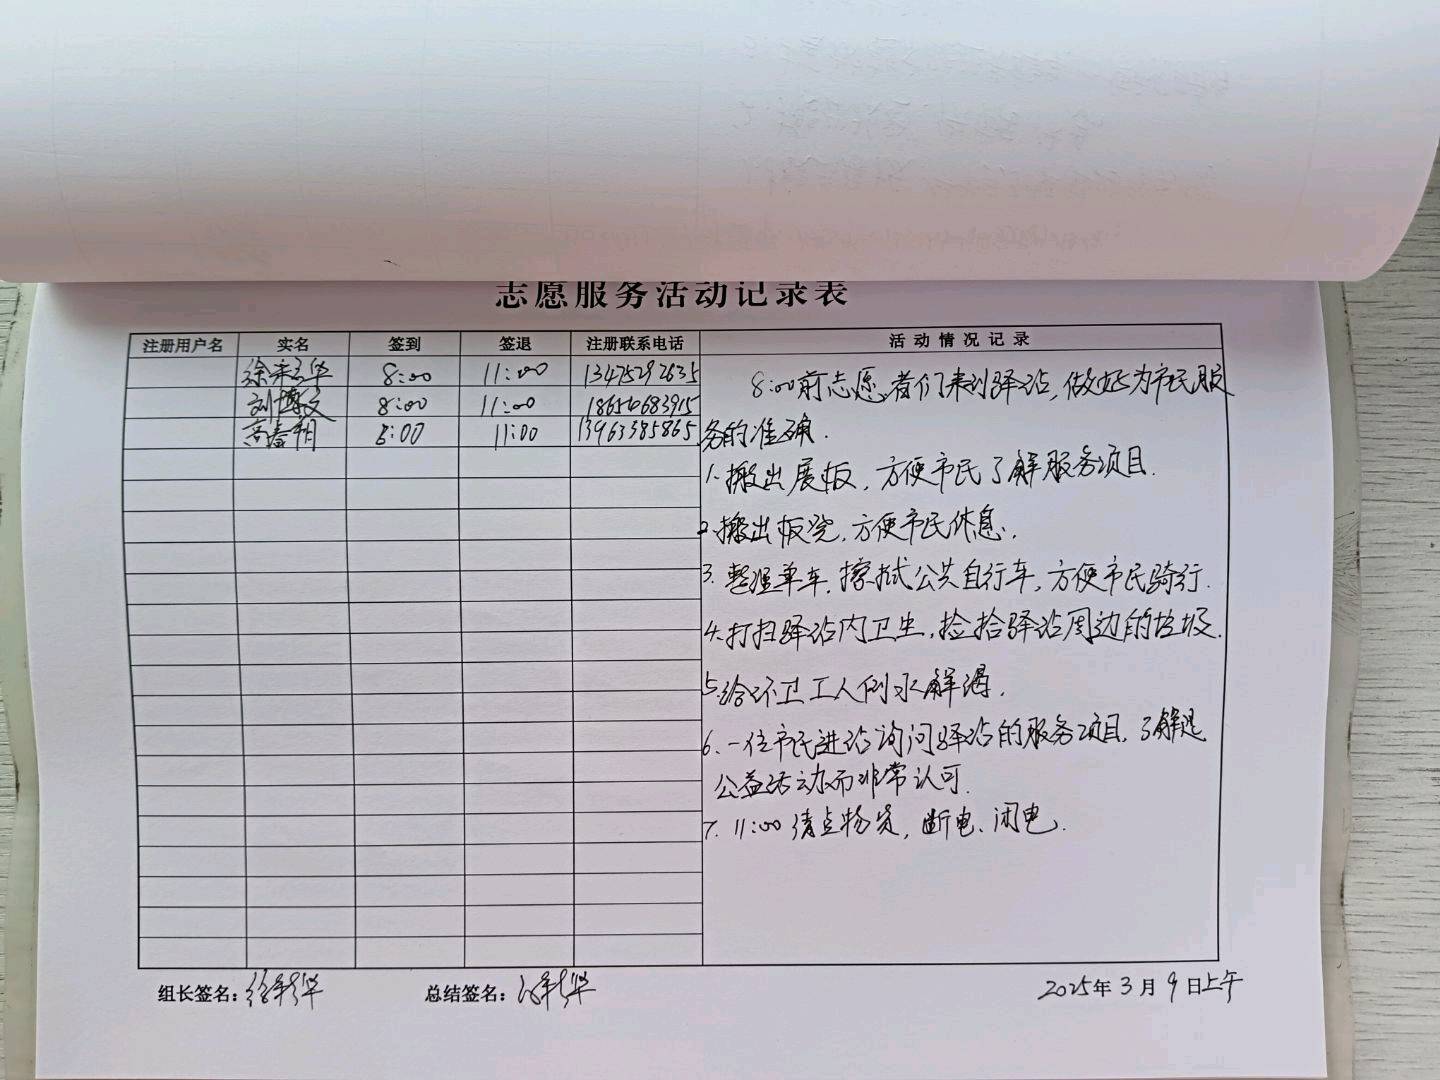 志愿服务活动记录表
注册用户名 实名 签到 签退 注册联系电话 活动情况记录
徐 华 8:00 11:00 13475292635
刘博文 8:00 11:00 18654683915
高春明 8:00 11:00 13963385865
8:00前志愿者们来到驿站,做好为市民服
务的准确.
1.搬出展板,方便市民了解服务项目.
2.搬出板凳,方便市民休息.
3.整理单车,擦拭公共自行车,方便市民骑行.
4.打扫驿站内卫生,捡拾驿站周边的垃圾.
5.给环卫工人倒水解渴.
6、一位市民进站询问驿站的服务项目,了解是
公益活动而非常认可.
7.11:00清点物资,断电、闭电.
组长签名: 总结签名: 2025年3月9日上午